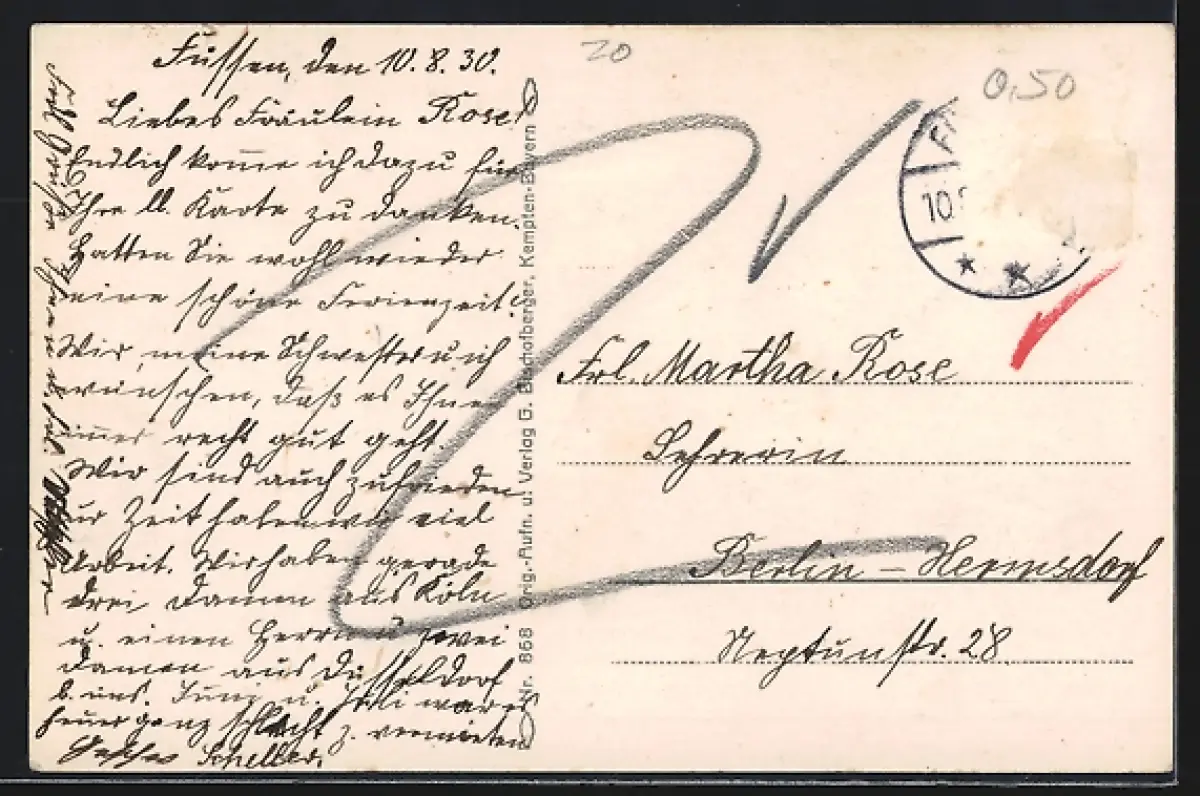 Füssen, den 10.8.30.
Liebes Fräulein Rose!
Endlich komme ich dazu für
Ihre lb. Karte zu danken.
Hatten Sie wohl wieder
eine schöne Ferienzeit?
Wir, meine Schwester u. ich
wünschen, daß es Ihnen
immer recht gut geht.
Wir sind auch zufrieden
zur Zeit haben wir viel
Arbeit. Wir haben gerade
drei Damen aus Köln
u. einen Herrn u. zwei
Damen aus Düsseldorf
b. uns. Juni u. Juli war es
heuer ganz schlecht z. vermieten
Scheller.
Nr. 868 Orig.-Aufn. u. Verlag G. Bischofberger, Kempten-Bayern
20
0,50
10
Frl. Martha Rose
Lehrerin
Berlin – Hermsdorf
Neptunstr. 28